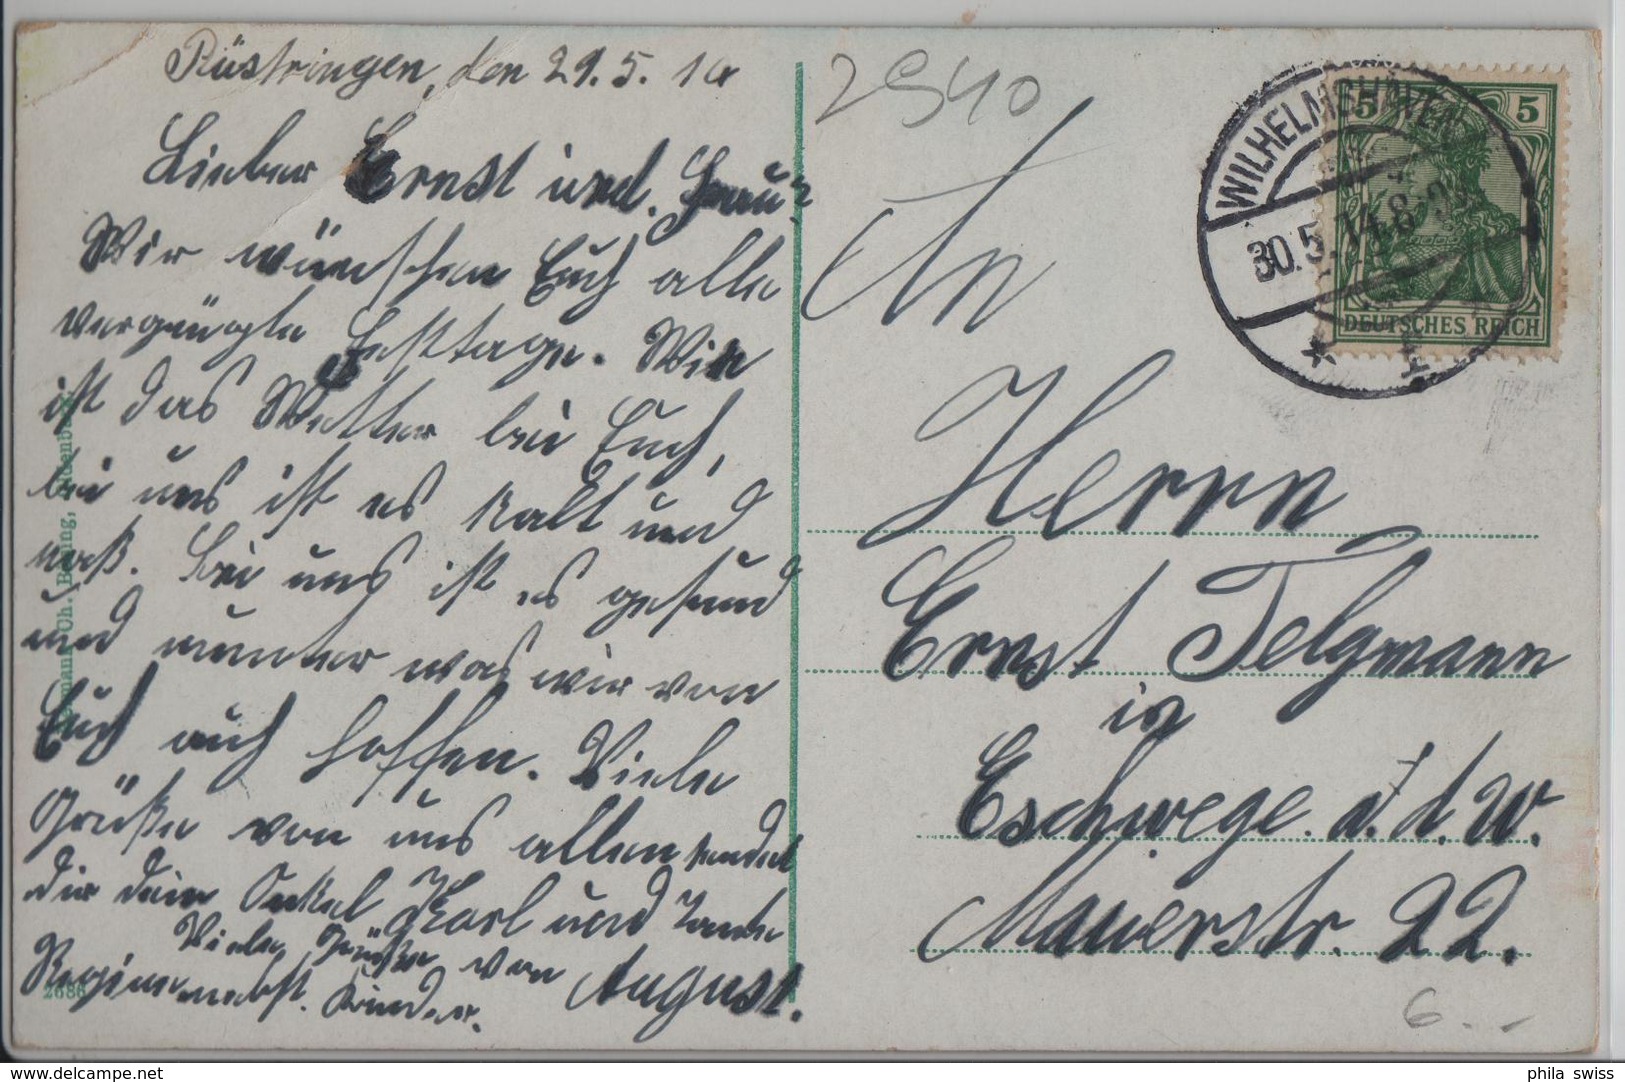 Rüstringen, den 29.5.14
Lieber Ernst und Frau?
Wir wünschen Euch alle
vergnügte Festtage. Wie
ist das Wetter bei Euch,
bei uns ist es kalt und
naß. Bei uns ist es gesund
und munter was wir von
Euch auch hoffen. Viele
Grüße von uns allen sendet
dir dein Onkel Karl und Tante
Regine nebst Kinder.
Viele Grüße von August.
2686
2940
An
Herrn
Ernst Telgmann
in
Eschwege. a. d. W.
Mauerstr. 22.
6.-
WILHELMSHAVEN
30.5.14.8-9
* 1 *
5 5
DEUTSCHES REICH
phila swiss
www.delcampe.net